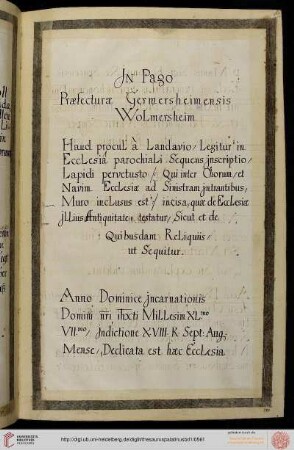 Jn Pago
Præfecturæ Germersheimensis
Wolmersheim
Haud procul à Landavio / Legitur in
Ecclesiâ parochiali Sequens jnscriptio /
Lapidi pervetusto / Qui inter Chorum / et
Navim Ecclesiæ ad Sinistram jntrantibus /
Muro inclusus est / incisa, quæ de Ecclesiæ
jllius Antiquitate testatur / Sicut et de
Quibusdam Reliquiis /
ut Sequitur.
Anno Dominice jncarnationis
Domini nri Millesim XL mo
VII mo / Indictione XVIII K Sept: Aug:
Mense / Dedicata est hæc Ecclesia
UNIVERSITÄTS-
BIBLIOTHEK
HEIDELBERG